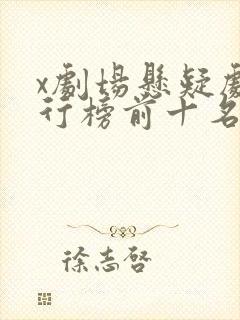 x劇場懸疑劇
行榜前十名
徐志啓